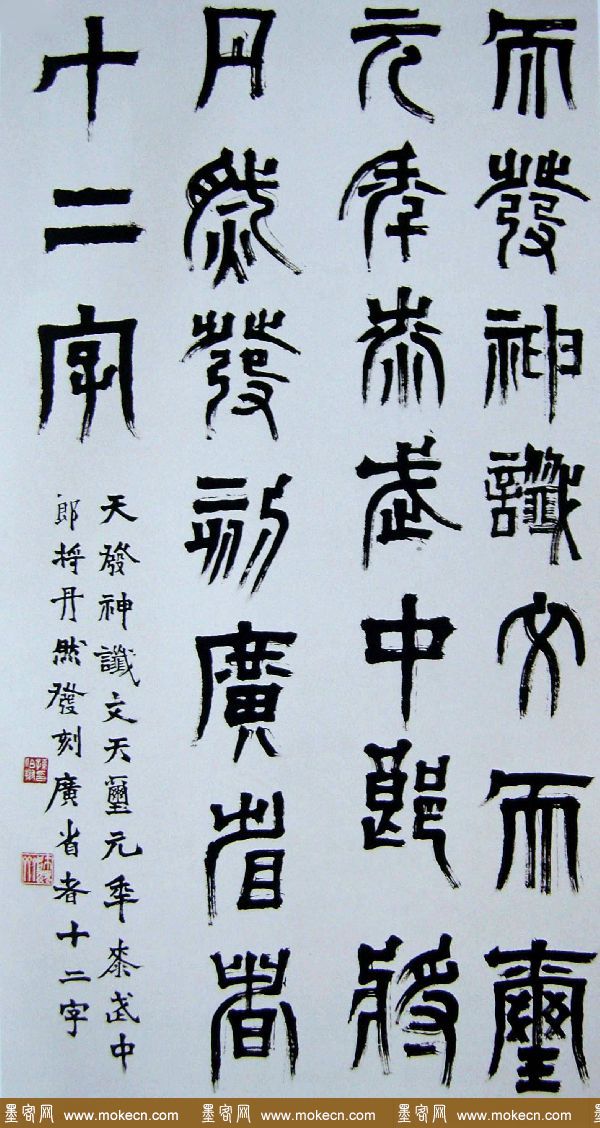 天發神讖文天璽
元年桼武中郎將
丹然發刻廣省者
十二字
天發神讖文天璽元年桼武中
郎將丹然發刻廣省者十二字
墨客网 www.mokecn.com 墨客网 www.mokecn.com 墨客网 www.mokecn.com